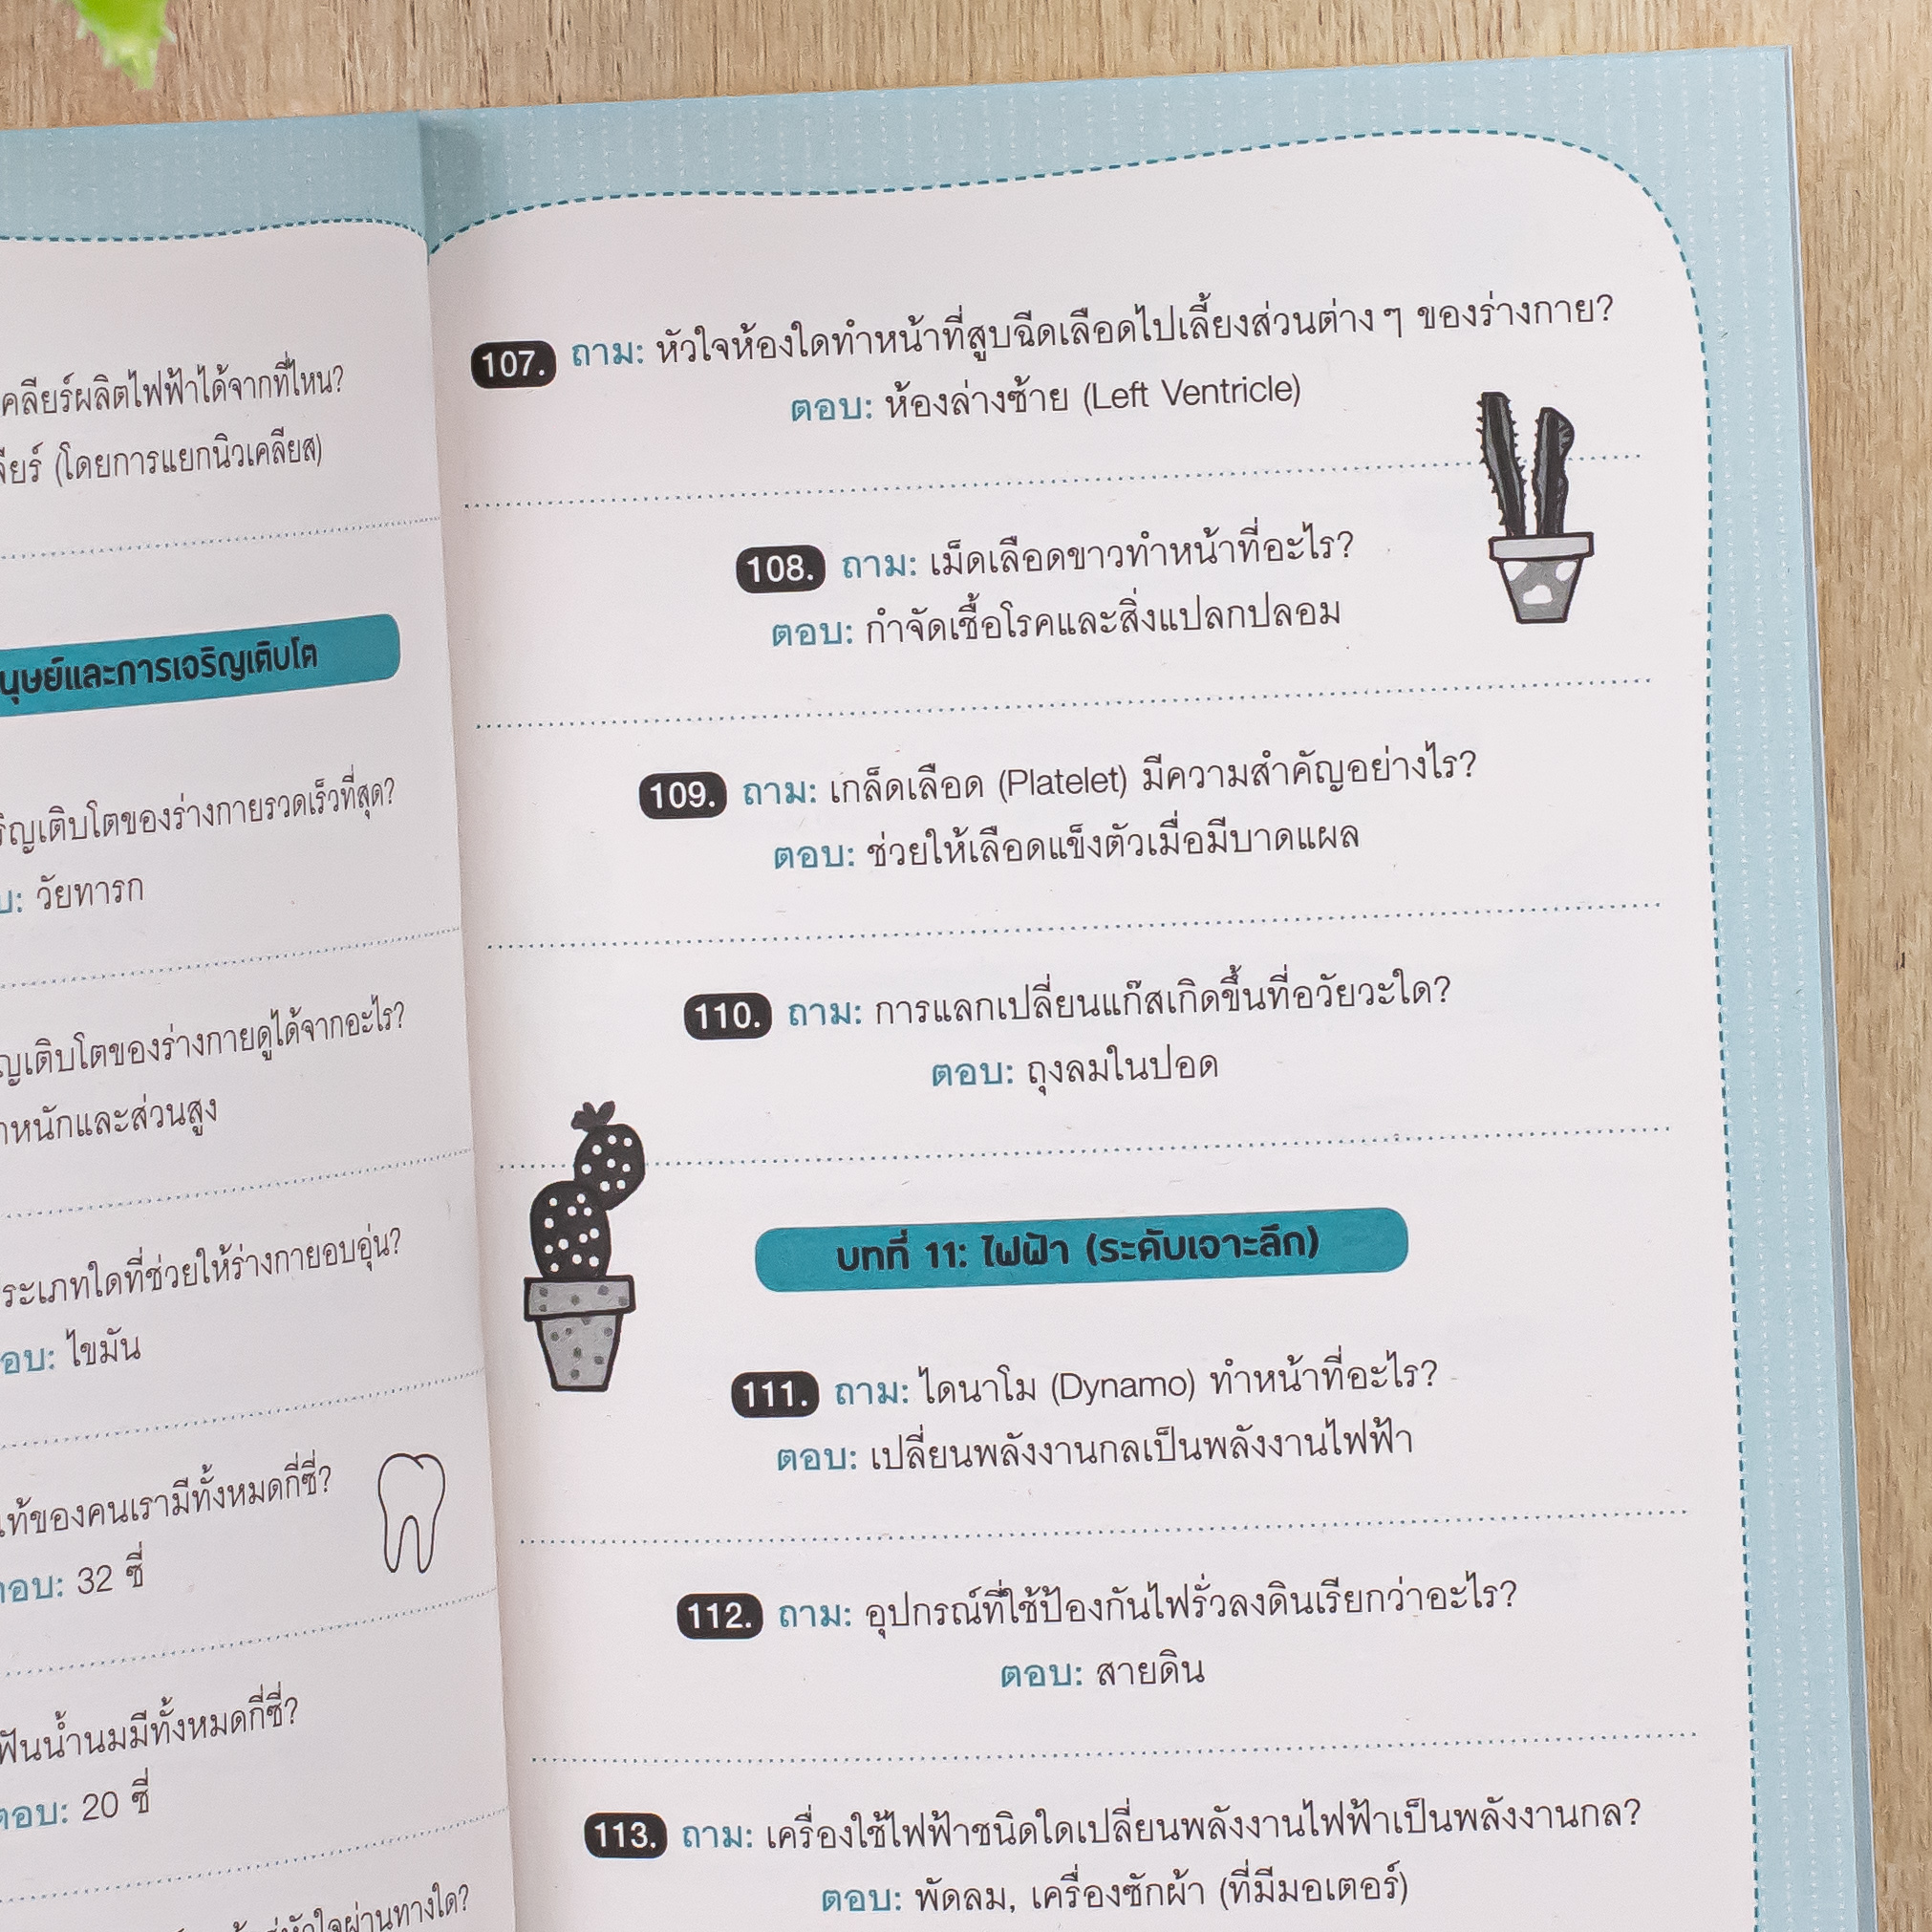 ผลิตไฟฟ้าได้จากที่ไหน?
(โดยการแยกนิวเคลียส)
และการเจริญเติบโต
เติบโตของร่างกายรวดเร็วที่สุด?
วัยทารก
เติบโตของร่างกายดูได้จากอะไร?
และส่วนสูง
ใดที่ช่วยให้ร่างกายอบอุ่น?
ไขมัน
ของคนเรามีทั้งหมดกี่ซี่?
ตอบ: 32 ซี่
ฟันน้ำนมมีทั้งหมดกี่ซี่?
ตอบ: 20 ซี่
107. ถาม: หัวใจห้องใดทำหน้าที่สูบฉีดเลือดไปเลี้ยงส่วนต่าง ๆ ของร่างกาย?
ตอบ: ห้องล่างซ้าย (Left Ventricle)
108. ถาม: เม็ดเลือดขาวทำหน้าที่อะไร?
ตอบ: กำจัดเชื้อโรคและสิ่งแปลกปลอม
109. ถาม: เกล็ดเลือด (Platelet) มีความสำคัญอย่างไร?
ตอบ: ช่วยให้เลือดแข็งตัวเมื่อมีบาดแผล
110. ถาม: การแลกเปลี่ยนแก๊สเกิดขึ้นที่อวัยวะใด?
ตอบ: ถุงลมในปอด
บทที่ 11: ไฟฟ้า (ระดับเจาะลึก)
111. ถาม: ไดนาโม (Dynamo) ทำหน้าที่อะไร?
ตอบ: เปลี่ยนพลังงานกลเป็นพลังงานไฟฟ้า
112. ถาม: อุปกรณ์ที่ใช้ป้องกันไฟรั่วลงดินเรียกว่าอะไร?
ตอบ: สายดิน
113. ถาม: เครื่องใช้ไฟฟ้าชนิดใดเปลี่ยนพลังงานไฟฟ้าเป็นพลังงานกล?
ตอบ: พัดลม, เครื่องซักผ้า (ที่มีมอเตอร์)